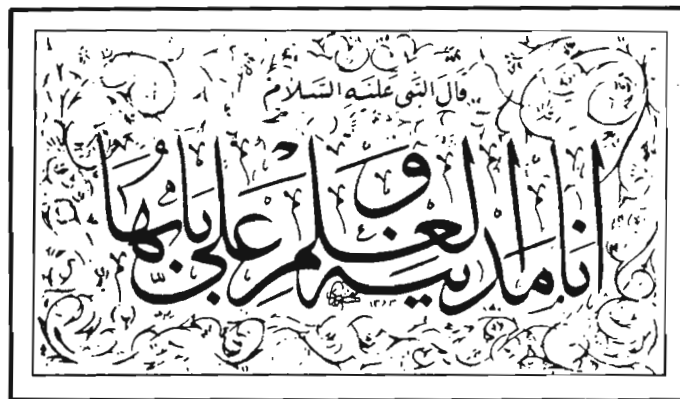 قَالَ النَّبِي عَلَيْهِ السَّلَامُ
أَنَا مَدِينَةُ الْعِلْمِ وَ عَلِيٌّ بَابُهَا
۱۳۶۳